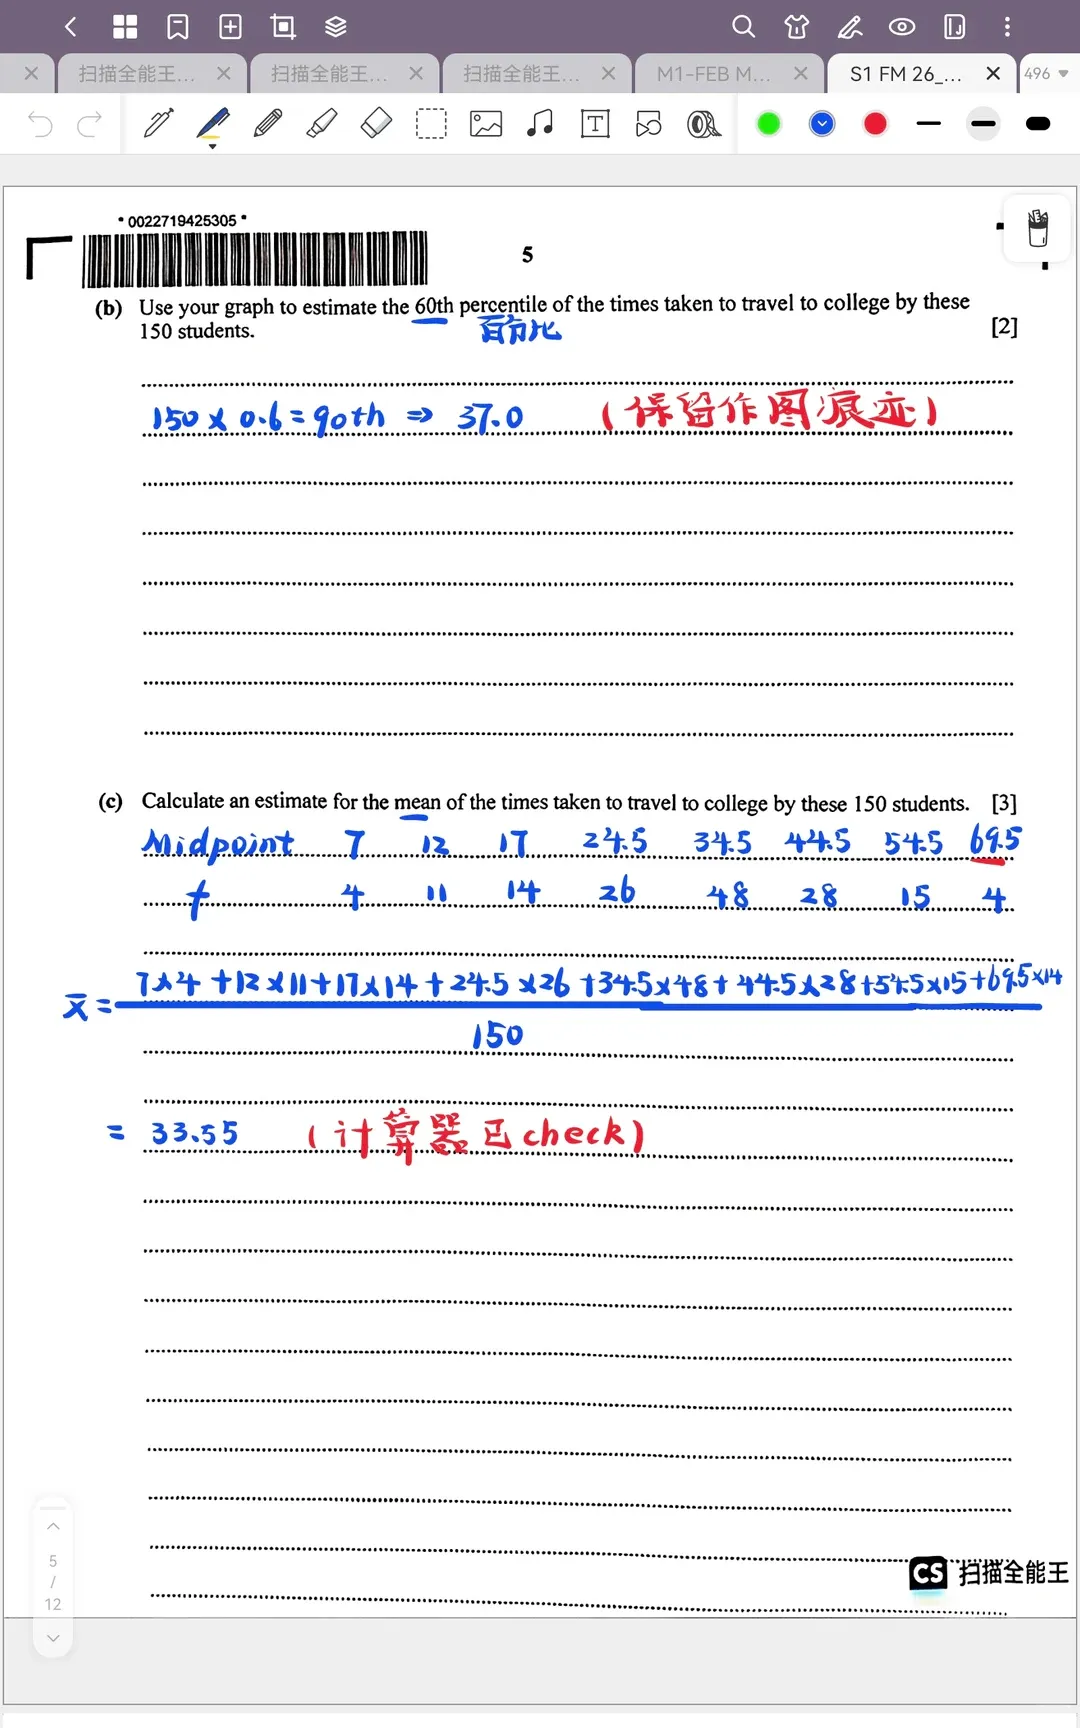 扫描全能王...
扫描全能王...
扫描全能王...
M1-FEB M...
S1 FM 26_...
496
* 0022719425305 *
5
(b) Use your graph to estimate the 60th percentile of the times taken to travel to college by these
150 students. [2]
百分比
150 × 0.6 = 90th ⇒ 37.0 (保留作图痕迹)
(c) Calculate an estimate for the mean of the times taken to travel to college by these 150 students. [3]
Midpoint 7 12 17 24.5 34.5 44.5 54.5 69.5
f 4 11 14 26 48 28 15 4
7×4 +12×11+17×14+24.5×26+34.5×48+44.5×28+54.5×15+69.5×14
x̄ =
150
= 33.55 (计算器已check)
5
/
12
CS 扫描全能王